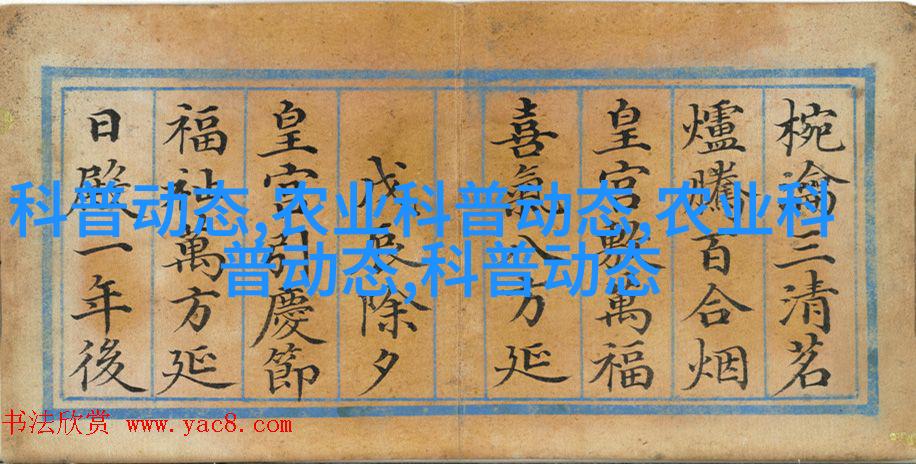 椀瀹三清茗
爐騰百合烟
皇宮敷萬福
喜氣八方延
戊辰除夕
皇宮引慶節
福祉萬方延
日殿一年後
科普动态,农业科普动态,农业科
普动态,科普动态
书法欣赏 www.yac8.com